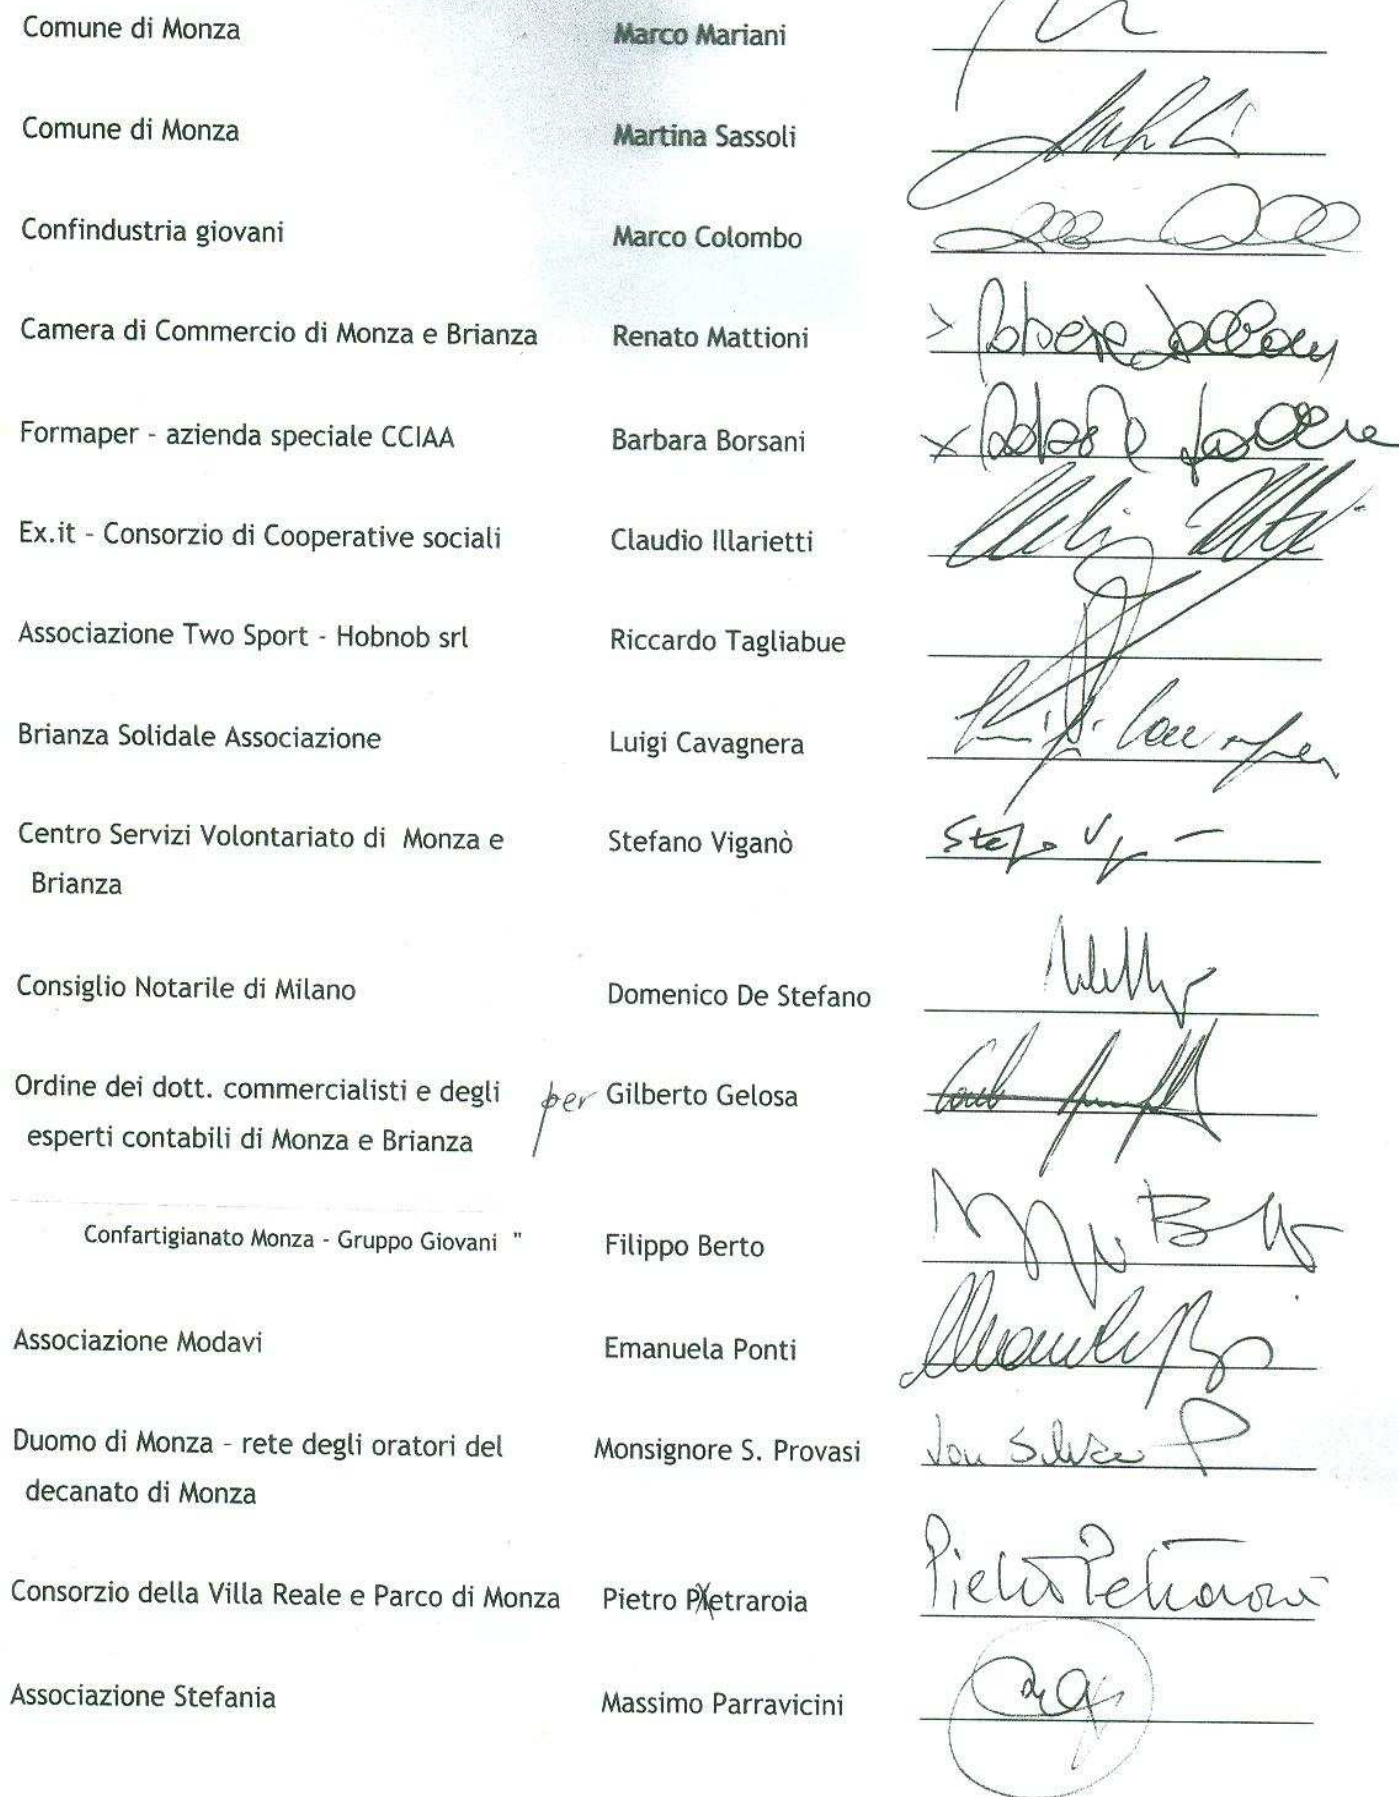 Comune di Monza Marco Mariani
Comune di Monza Martina Sassoli
Confindustria giovani Marco Colombo
Camera di Commercio di Monza e Brianza Renato Mattioni
Formaper - azienda speciale CCIAA Barbara Borsani
Ex.it - Consorzio di Cooperative sociali Claudio Illarietti
Associazione Two Sport - Hobnob srl Riccardo Tagliabue
Brianza Solidale Associazione Luigi Cavagnera
Centro Servizi Volontariato di Monza e Stefano Viganò
Brianza
Consiglio Notarile di Milano Domenico De Stefano
Ordine dei dott. commercialisti e degli per Gilberto Gelosa
esperti contabili di Monza e Brianza
Confartigianato Monza - Gruppo Giovani " Filippo Berto
Associazione Modavi Emanuela Ponti
Duomo di Monza - rete degli oratori del Monsignore S. Provasi
decanato di Monza
Consorzio della Villa Reale e Parco di Monza Pietro Pietraroia Pietro Petraroia
Associazione Stefania Massimo Parravicini